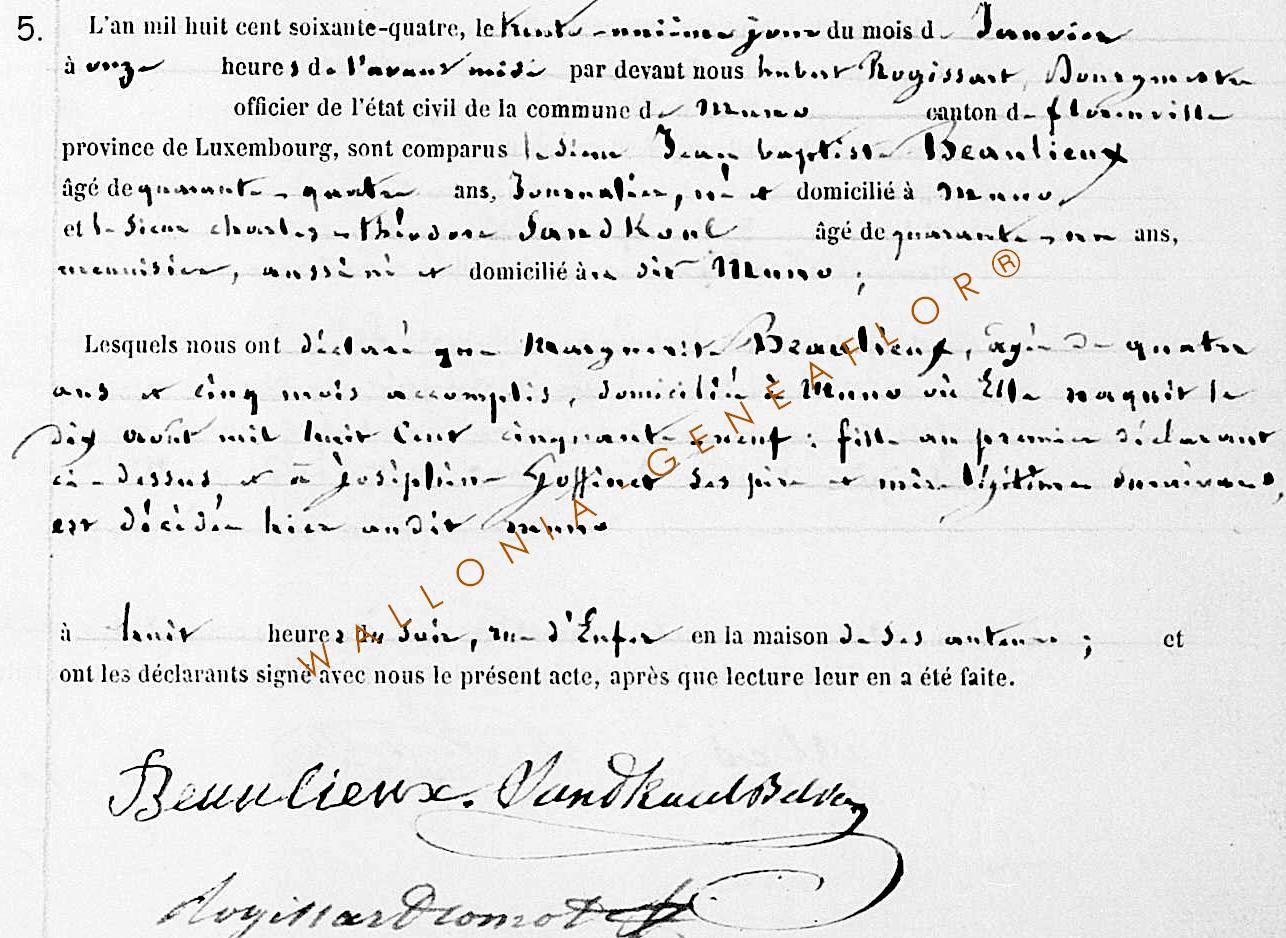 5. L'an mil huit cent soixante-quatre, le trente-unième jour du mois de Janvier
à onze heures de l'avant midi par devant nous hubert Rogissart, Bourgmestre
officier de l'état civil de la commune de Muno canton de florenville
province de Luxembourg, sont comparus le sieur Jean baptiste Beaulieux
âgé de quarante-quatre ans, Journalier, né et domicilié à Muno,
et le sieur charles-théodore Sandkoul âgé de quarante-un ans,
menuisier, aussi né et domicilié à ce dit Muno ;
Lesquels nous ont déclaré que Marguerite Beaulieux, âgée de quatre
ans et cinq mois accomplis, domiciliée à Muno où Elle naquit le
dix août mil huit Cent cinquante-neuf ; fille au premier déclarant
ci-dessus et à Joséphine Goffinet ses père et mère légitimes survivans,
est décédée hier audit muno
à huit heures du soir, rue d'Enfer en la maison de ses auteurs ; et
ont les déclarants signé avec nous le présent acte, après que lecture leur en a été faite.
Beaulieux. Sandkoul
Rogissart
WALLONIA-GENEAFLOR®